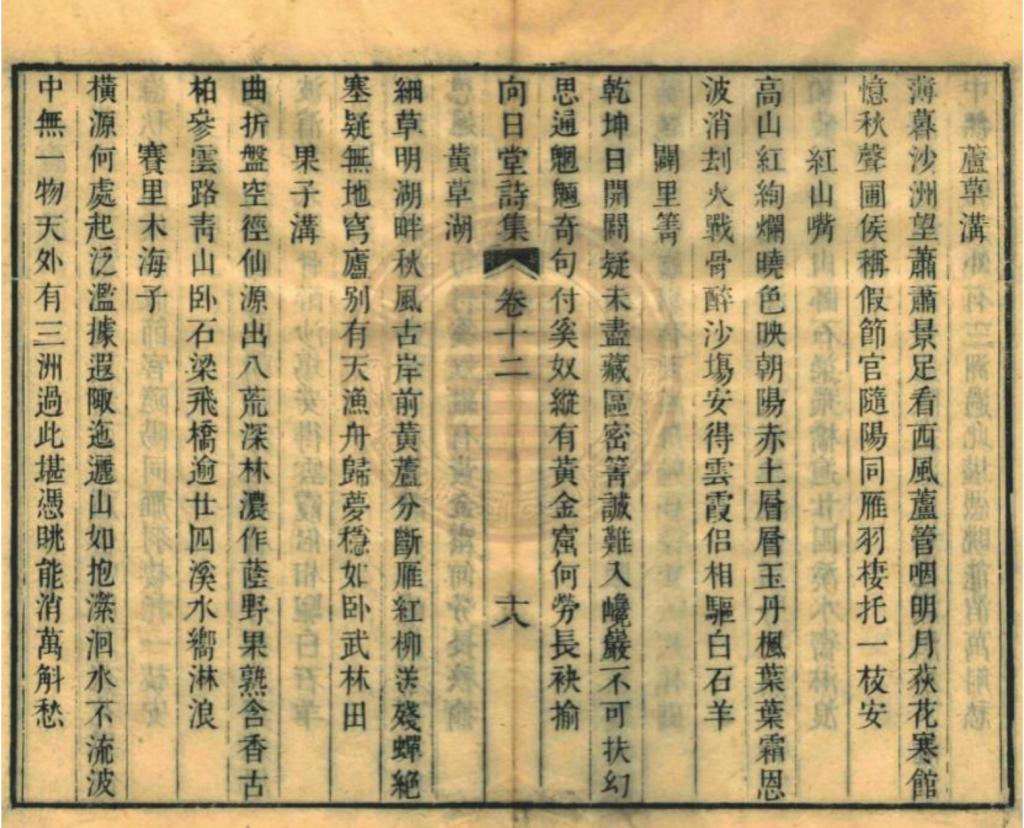 蘆草溝
薄暮沙洲望蕭蕭景足看西風蘆管咽明月荻花寒館
憶秋聲圃侯稱假節官隨陽同雁羽棲托一枝安
紅山嘴
高山紅絢爛曉色映朝陽赤土層層玉丹楓葉葉霜恩
波消刦火戰骨醉沙塲安得雲霞侶相驅白石羊
闢里箐
乾坤日開闢疑未盡藏區密箐誠難入巉巖不可扶幻
思通魍魎奇句付奚奴縱有黃金窟何勞長袂揄
向日堂詩集 卷十二 十八
黃草湖
細草明湖畔秋風古岸前黃蘆分斷雁紅柳送殘蟬絕
塞疑無地穹廬别有天漁舟歸夢穩如卧武林田
果子溝
曲折盤空徑仙源出八荒深林濃作蔭野果熟含香古
柏參雲路靑山卧石梁飛橋逾廿四溪水嚮淋浪
賽里木海子
橫源何處起泛濫據遐陬迤邐山如抱瀠洄水不流波
中無一物天外有三洲過此堪憑眺能消萬斛愁